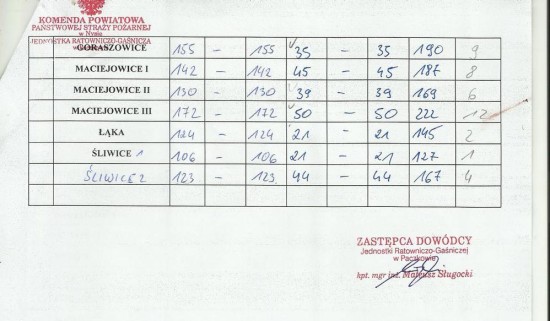 KOMENDA POWIATOWA
PAŃSTWOWEJ STRAŻY POŻARNEJ
w Nysie
JEDNOSTKA RATOWNICZO-GAŚNICZA
GORASZOWICE 155 – 155 35 – 35 190 9
MACIEJOWICE I 142 – 142 45 – 45 187 8
MACIEJOWICE II 130 – 130 39 – 39 169 6
MACIEJOWICE III 172 – 172 50 – 50 222 12
ŁĄKA 124 – 124 21 – 21 145 2
ŚLIWICE 1 106 – 106 21 – 21 127 1
ŚLIWICE 2 123 – 123 44 – 44 167 4
ZASTĘPCA DOWÓDCY
Jednostki Ratowniczo-Gaśniczej
w Paczkowie
kpt. mgr inż. Mateusz Sługocki